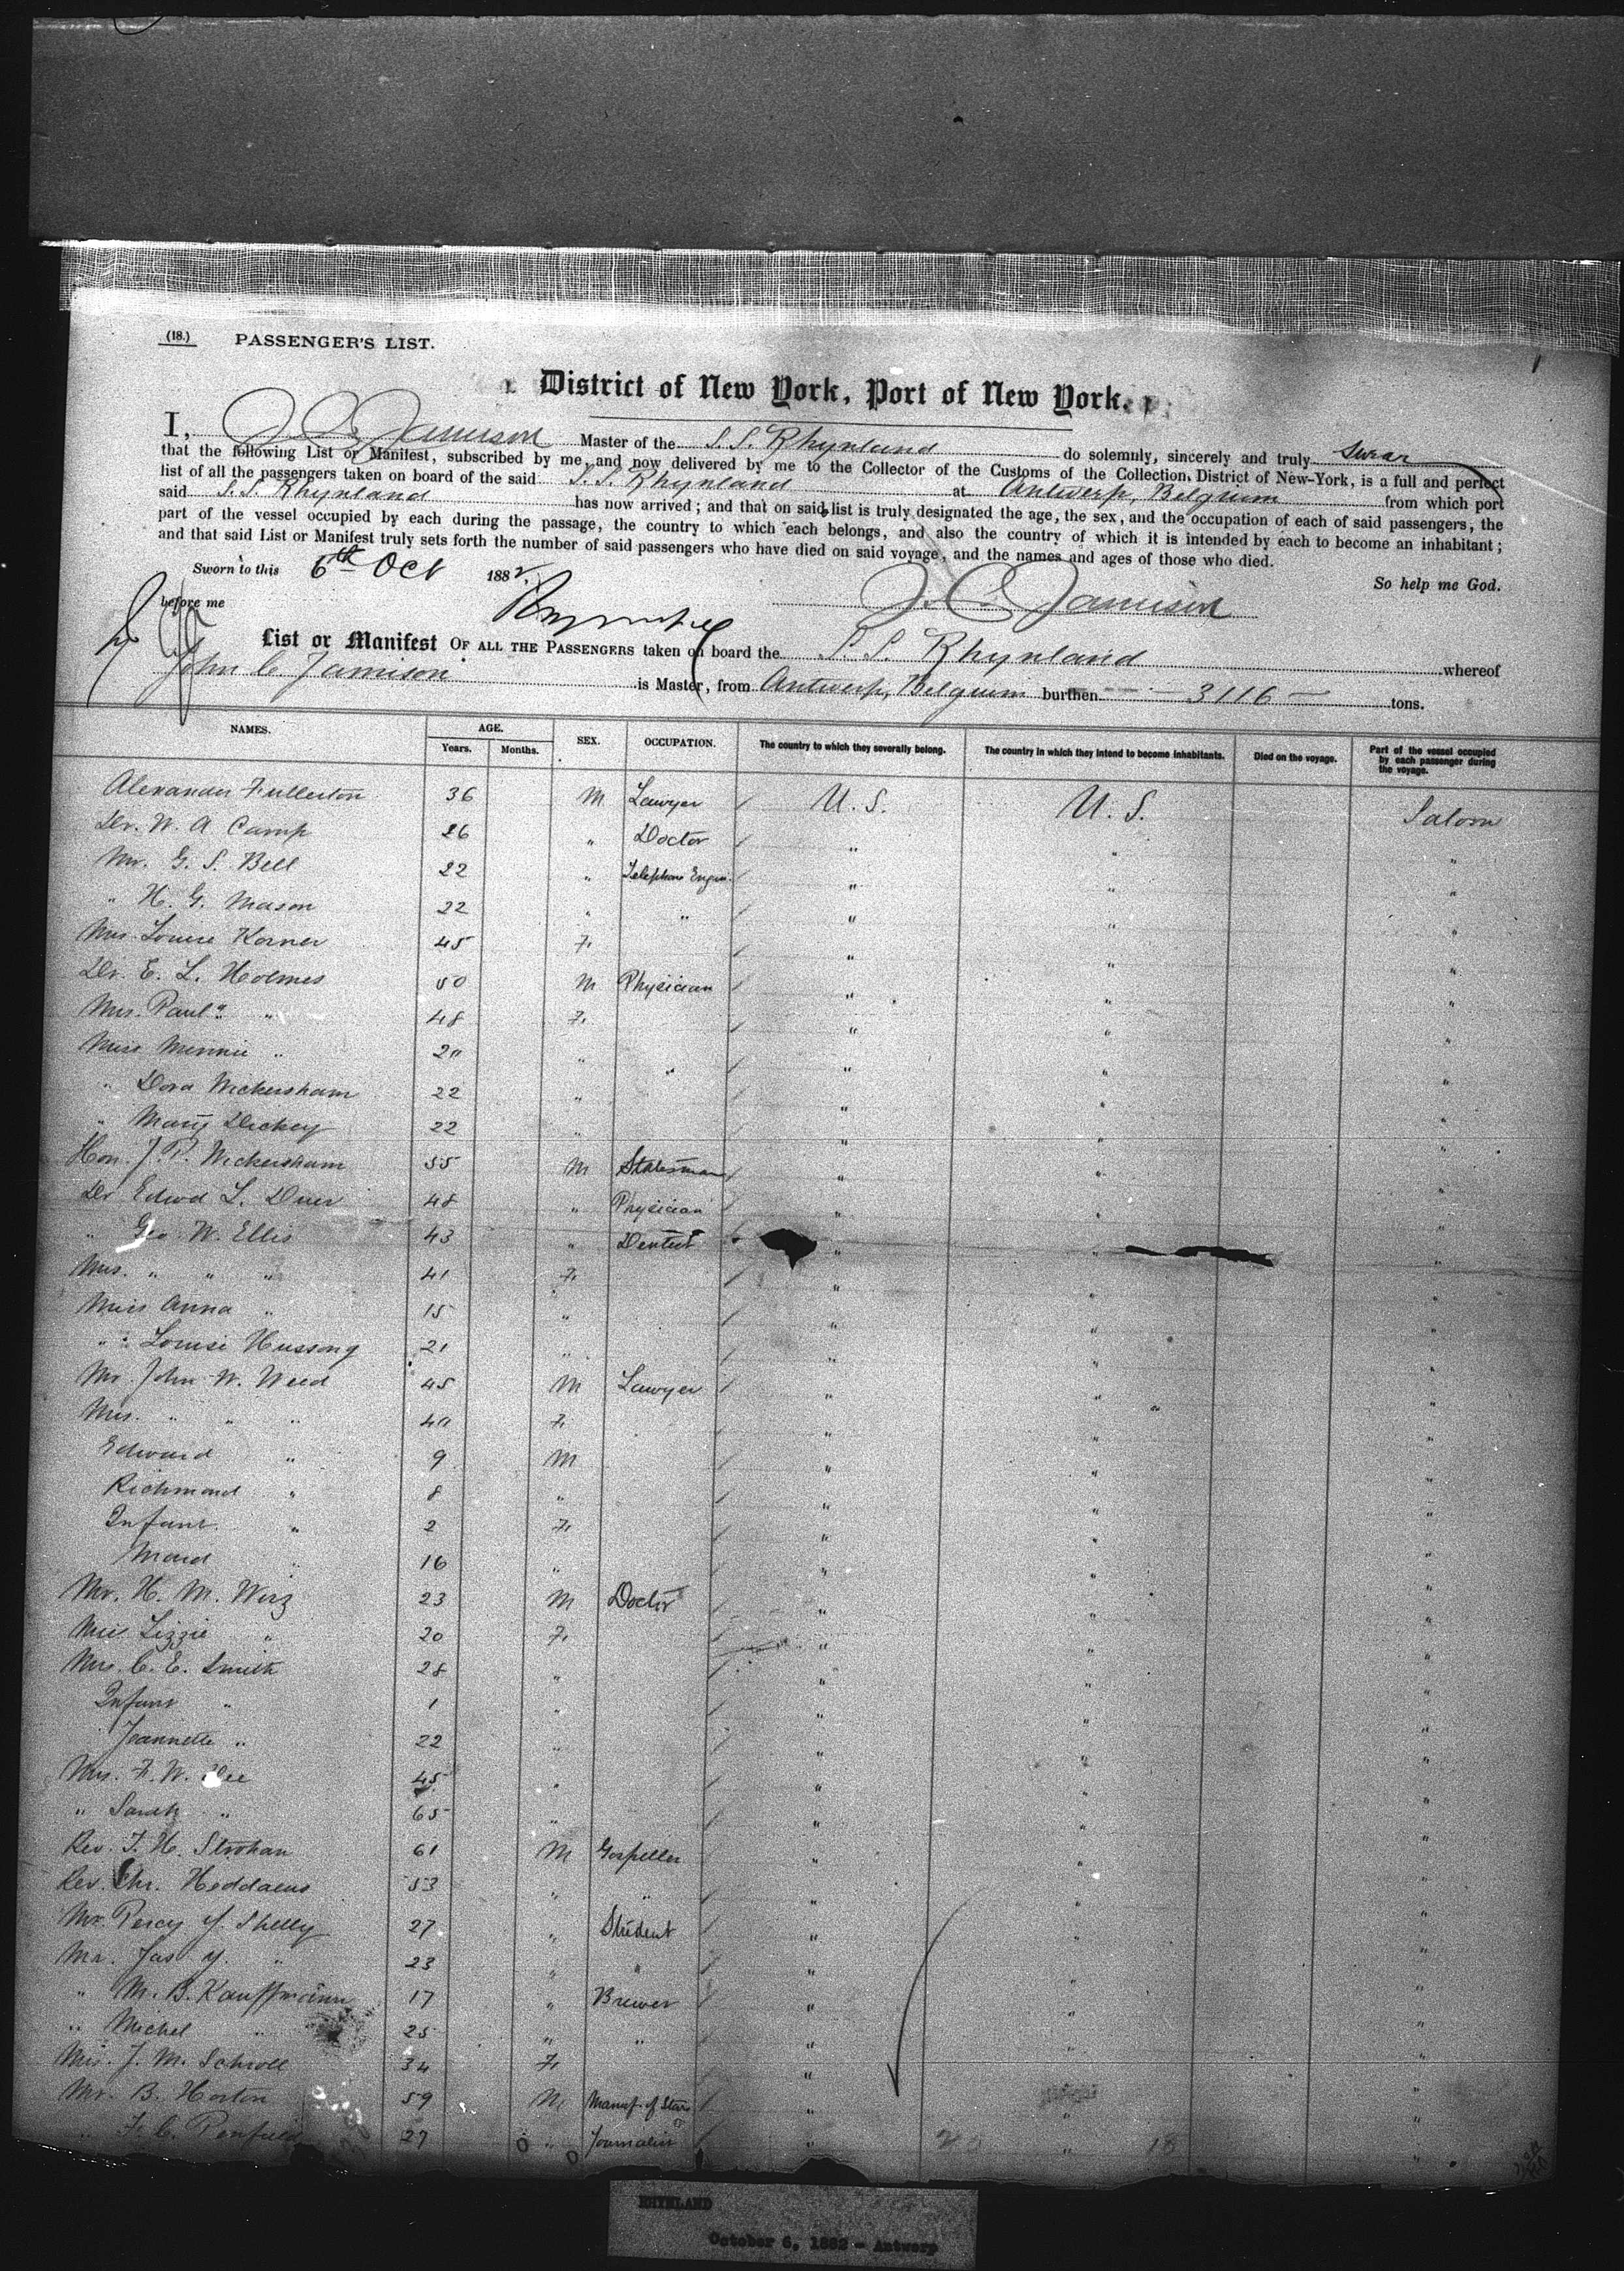 (18.) PASSENGER'S LIST.
1
District of New York, Port of New York.
I, J. C. Jamison Master of the S.S. Rhynland do solemnly, sincerely and truly swear
that the following List or Manifest, subscribed by me, and now delivered by me to the Collector of the Customs of the Collection District of New-York, is a full and perfect
list of all the passengers taken on board of the said S.S. Rhynland at Antwerp, Belgium from which port
said S.S. Rhynland has now arrived; and that on said list is truly designated the age, the sex, and the occupation of each of said passengers, the
part of the vessel occupied by each during the passage, the country to which each belongs, and also the country of which it is intended by each to become an inhabitant;
and that said List or Manifest truly sets forth the number of said passengers who have died on said voyage, and the names and ages of those who died.
So help me God.
Sworn to this 6th Oct 1882.
J. C. Jamison
before me
List or Manifest OF ALL THE PASSENGERS taken on board the S.S. Rhynland whereof
John C Jamison is Master, from Antwerp, Belgium burthen 3116 tons.
NAMES. AGE. Years. Months. SEX. OCCUPATION. The country to which they severally belong. The country in which they intend to become inhabitants. Died on the voyage. Part of the vessel occupied by each passenger during the voyage.
Alexander Fullerton 36 M Lawyer U. S. U. S. Saloon
Dr. W. A Camp 26 " Doctor " " "
Mr. G. S. Bell 22 " Telephone Engin. " " "
" H. G. Mason 22 " " " " "
Mrs Louise Korner 45 F. " " "
Dr. E. L. Holmes 50 M Physician " " "
Mrs. Paul " 48 F. " " "
Miss Minnie " 20 " " " "
" Dora Wickersham 22 " " " "
" Mary Dickey 22 " " " "
Hon. J. P. Wickersham 55 M Statesman " " "
Dr Edwd L. Duer 48 " Physician " " "
" Geo W. Ellis 43 " Dentist " " "
Mrs. " " " 41 F. " " "
Miss Anna " 15 " " " "
" Louise Hussong 21 " " " "
Mr John W. Weed 45 M Lawyer " " "
Mrs. " " " 40 F. " " "
Edward " 9 M " " "
Richmond " 8 " " " "
Infant " 2 F. " " "
Maid " 16 " " " "
Mr. H. M. Wirz 23 M Doctor " " "
Miss Lizzie " 20 F. " " "
Mrs. C. E. Smith 28 " " " "
Infant " 1 " " " "
Jeannette " 22 " " " "
Mrs. F. W. 45 " " " "
" Sarah " 65 " " " "
Rev. T. H. Strohan 61 M Gospeller " " "
Rev. Chr. Heddaeus 53 " " " " "
Mr. Percy Y. Shelly 27 " Student " " "
Mr. Jas Y. " 23 " " " " "
" M. B. Kauffmann 17 " Brewer " " "
" Michel " 25 " " " " "
Mrs. J. M. Schroll 34 F. " " "
Mr. B. Horton 59 M Manuf. of " " "
" F. C. Penfield 27 " Journalist " " "
RHYNLAND
October 6, 1882 - Antwerp